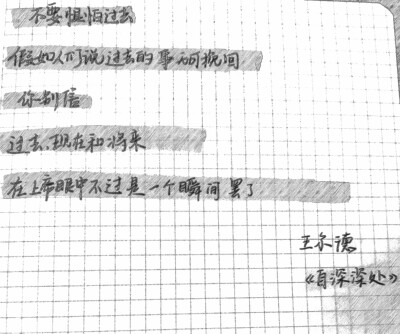 不要惧怕过去
假如人们说过去的事不可挽回
你别信
过去、现在和将来
在上帝眼中不过是一个瞬间罢了
王尔德
《自深深处》